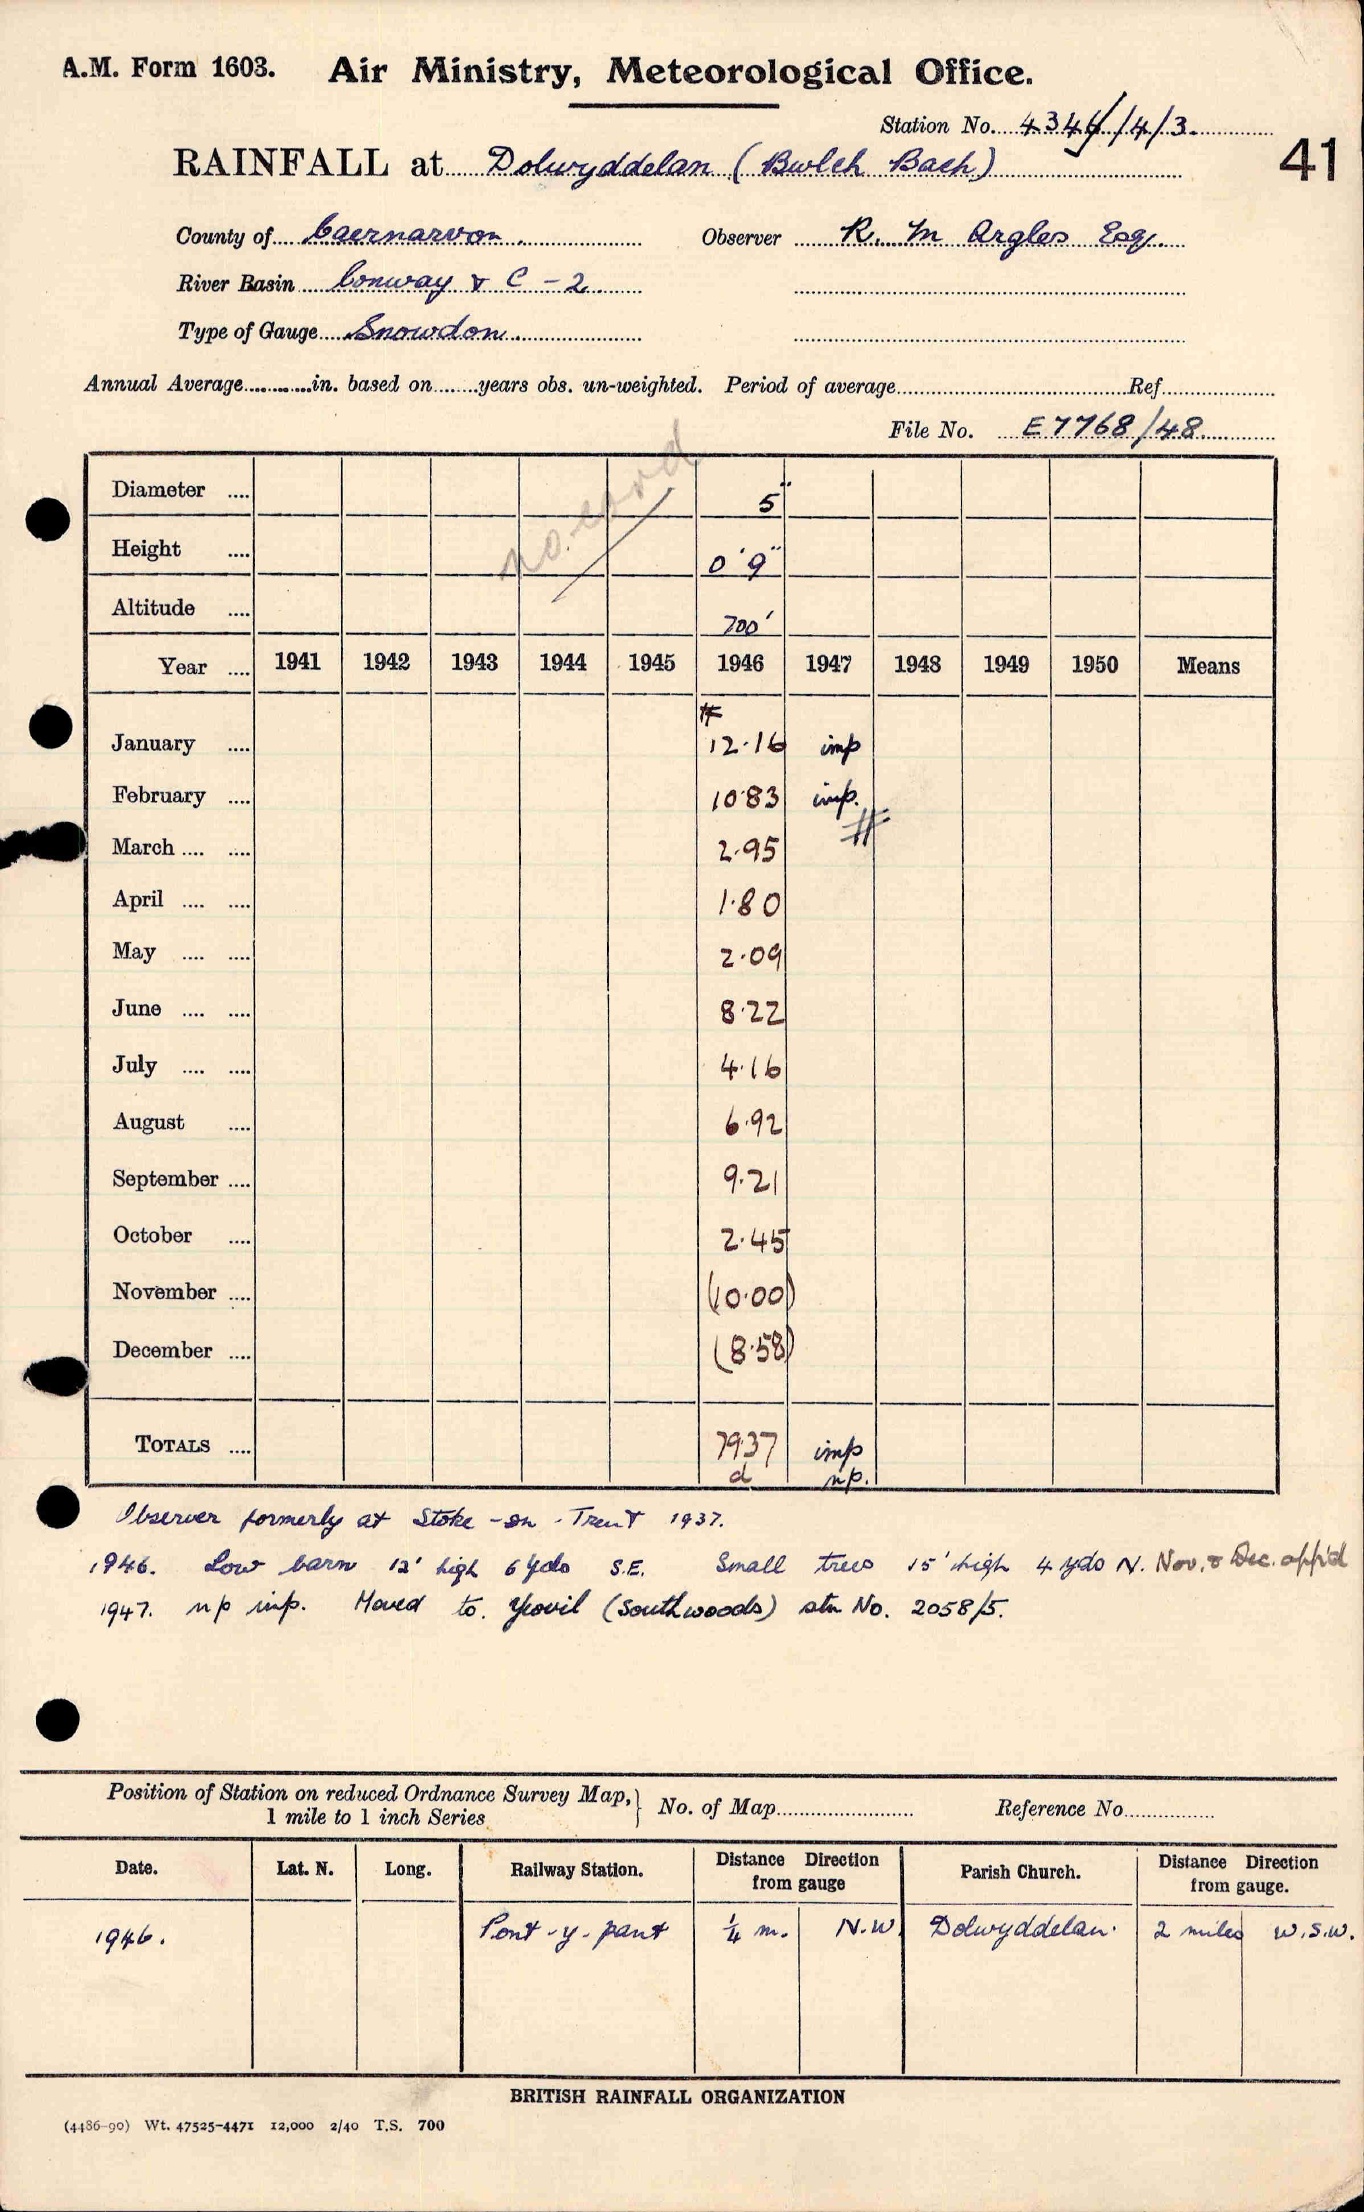 A.M. Form 1603. Air Ministry, Meteorological Office.
Station No. 4344/4/3.
RAINFALL at Dolwyddelan (Bwlch Bach)
41
County of Caernarvon. Observer R. M Argles Esq.
River Basin Conway & C - 2
Type of Gauge Snowdon.
Annual Average............in. based on.......years obs. un-weighted. Period of average.......... Ref..........
File No. E7768/48
no card
Diameter .... 5"
Height .... 0' 9"
Altitude .... 700'
Year .... 1941 1942 1943 1944 1945 1946 1947 1948 1949 1950 Means
January .... 12.16 imp
February .... 10.83 imp.
March .... .... 2.95
April .... .... 1.80
May .... .... 2.09
June .... .... 8.22
July .... .... 4.16
August .... 6.92
September .... 9.21
October .... 2.45
November .... (10.00)
December .... (8.58)
TOTALS .... 79.37 imp
d np.
Observer formerly at Stoke-on-Trent 1937.
1946. Low barn 12' high 6 yds S.E. Small trees 15' high 4 yds N. Nov. & Dec. app'd
1947. np imp. Moved to Yeovil (Southwoods) stn No. 2058/5.
Position of Station on reduced Ordnance Survey Map, 1 mile to 1 inch Series } No. of Map.......... Reference No..........
Date. Lat. N. Long. Railway Station. Distance Direction from gauge Parish Church. Distance Direction from gauge.
1946. Pont-y-pant 1/4 m. N.W. Dolwyddelan. 2 miles W.S.W.
BRITISH RAINFALL ORGANIZATION
(4486-90) Wt. 47525-4471 12,000 2/40 T.S. 700